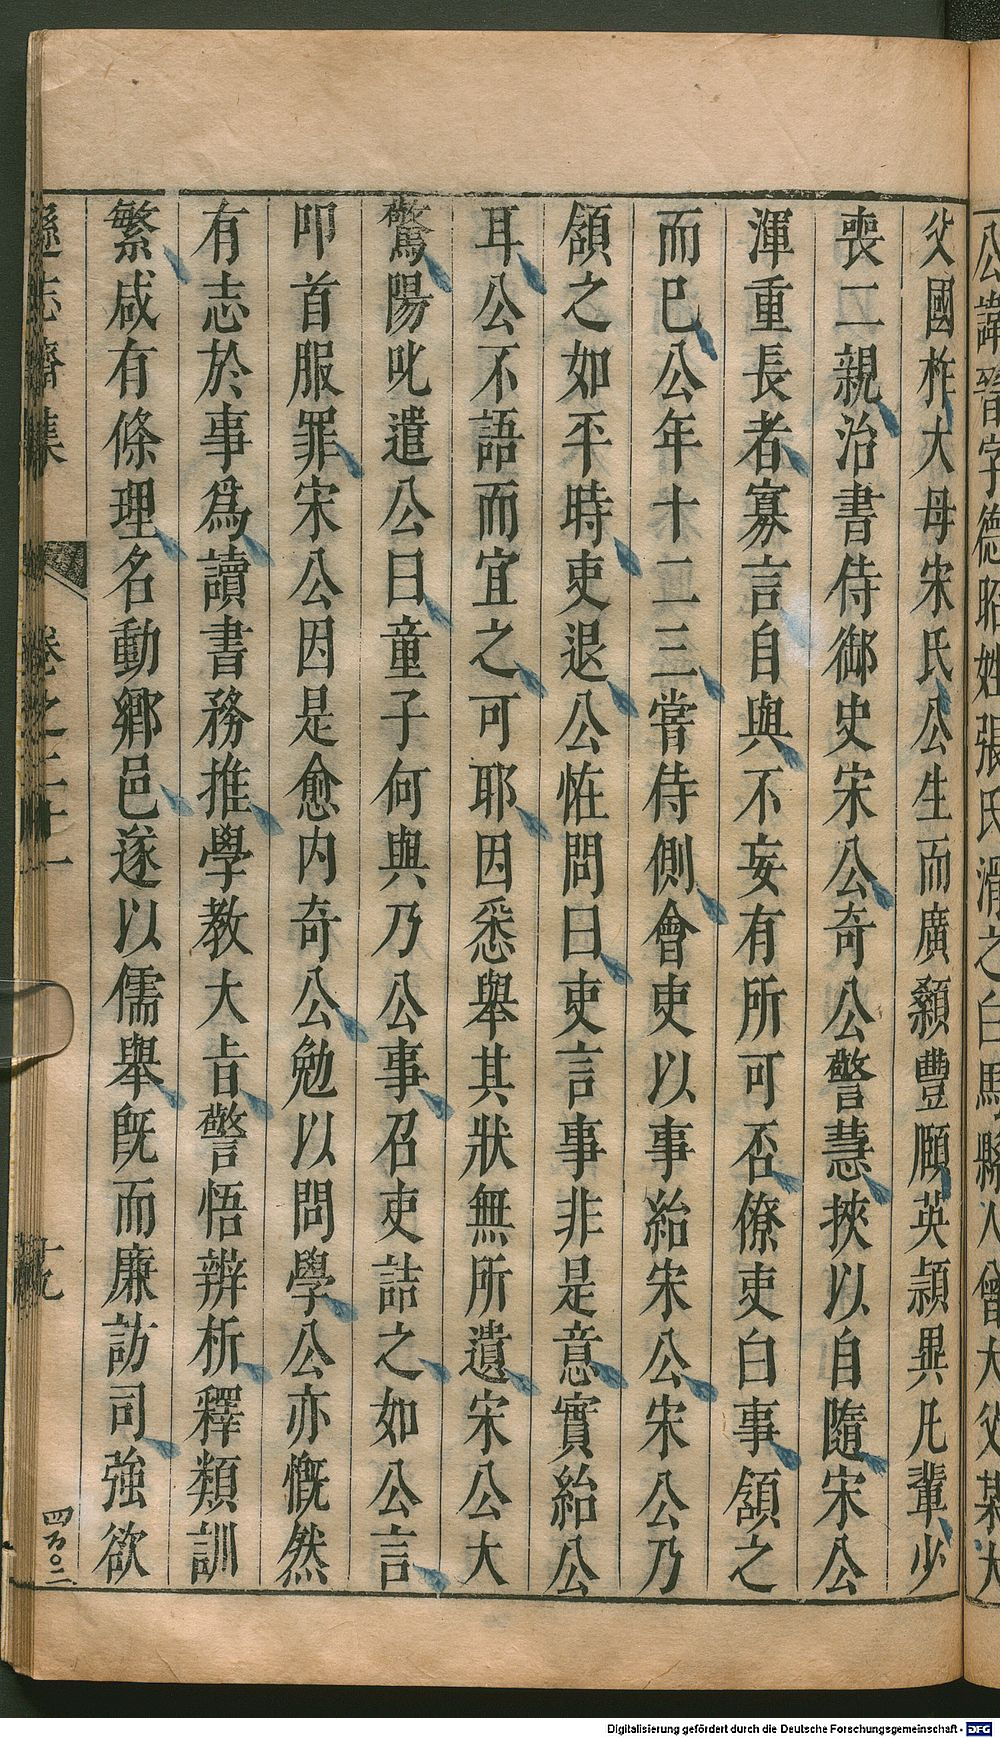 公諱晉字德昭姓張氏滑之白馬縣人曾大父某大
父國柞大母宋氏公生而廣顙豐頤英頴異凡輩少
喪二親治書侍御史宋公奇公警慧挾以自隨宋公
渾重長者寡言自與不妄有所可否僚吏白事頷之
而已公年十二三嘗侍側會吏以事紿宋公宋公乃
頷之如平時吏退公恠問曰吏言事非是意實紿公
耳公不語而宜之可耶因悉舉其狀無所遺宋公大
驚陽叱遣公曰童子何與乃公事召吏詰之如公言
叩首服罪宋公因是愈内奇公勉以問學公亦慨然
有志於事爲讀書務推學教大㫖警悟辨析釋類訓
繁咸有條理名動鄉邑遂以儒舉旣而廉訪司強欲
遜志齋集
卷之二十一
十九
四百〇二
Digitalisierung gefördert durch die Deutsche Forschungsgemeinschaft - DFG